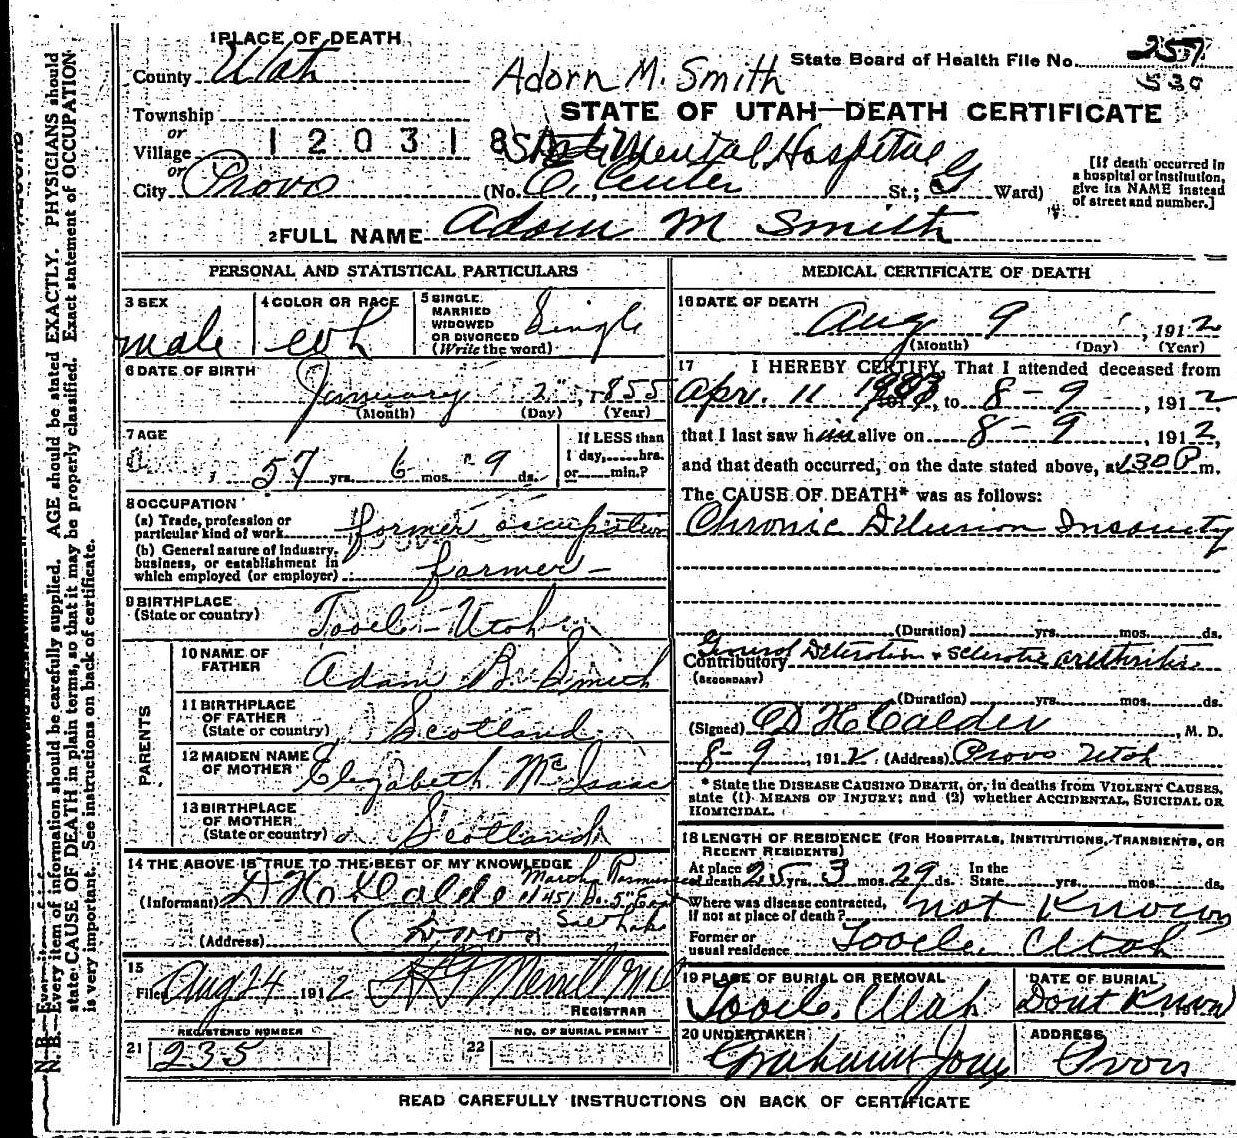 1 PLACE OF DEATH
County Utah
Adorn M. Smith
State Board of Health File No. 257
530
STATE OF UTAH—DEATH CERTIFICATE
Township
or
Village
1 2 0 3 1 8
State Mental Hospital
or
City Provo (No. E. Center St.; Ward)
[If death occurred in
a hospital or institution,
give its NAME instead
of street and number.]
2 FULL NAME Adorn M Smith
PERSONAL AND STATISTICAL PARTICULARS
3 SEX
male
4 COLOR OR RACE
wh
5 SINGLE,
MARRIED
WIDOWED
OR DIVORCED
(Write the word)
Single
6 DATE OF BIRTH
January 2, 1855
(Month) (Day) (Year)
7 AGE
57 yrs. 6 mos. 9 ds.
If LESS than
1 day,......hrs.
or......min.?
8 OCCUPATION
(a) Trade, profession or
particular kind of work former occupation
(b) General nature of industry,
business, or establishment in
which employed (or employer) farmer
9 BIRTHPLACE
(State or country) Tooele Utah
PARENTS
10 NAME OF
FATHER Adam B. Smith
11 BIRTHPLACE
OF FATHER
(State or country) Scotland
12 MAIDEN NAME
OF MOTHER Elizabeth McIsaac
13 BIRTHPLACE
OF MOTHER
(State or country) Scotland
14 THE ABOVE IS TRUE TO THE BEST OF MY KNOWLEDGE
(Informant) D H Calder
Martha
451 So. 5" East
Salt Lake
(Address) Provo
15
Filed Aug 24 1912
REGISTRAR
21 REGISTERED NUMBER
235
22 NO. OF BURIAL PERMIT
MEDICAL CERTIFICATE OF DEATH
16 DATE OF DEATH
Aug 9, 1912
(Month) (Day) (Year)
17 I HEREBY CERTIFY, That I attended deceased from
Apr. 11 1903, to 8-9, 1912,
that I last saw him alive on 8-9, 1912,
and that death occurred, on the date stated above, at 130 P m.
The CAUSE OF DEATH* was as follows:
Chronic Delusion Insanity
(Duration) yrs. mos. ds.
Contributory General &
(SECONDARY)
(Duration) yrs. mos. ds.
(Signed) D H Calder, M. D.
8-9, 1912. (Address) Provo Utah
* State the DISEASE CAUSING DEATH, or, in deaths from VIOLENT CAUSES,
state (1) MEANS OF INJURY; and (2) whether ACCIDENTAL, SUICIDAL OR
HOMICIDAL.
18 LENGTH OF RESIDENCE (FOR HOSPITALS, INSTITUTIONS, TRANSIENTS, OR
RECENT RESIDENTS)
At place
of death 25 yrs. 3 mos. 29 ds.
In the
State yrs. mos. ds.
Where was disease contracted,
if not at place of death? not Known
Former or
usual residence Tooele Utah
19 PLACE OF BURIAL OR REMOVAL
Tooele, Utah
DATE OF BURIAL
Dont Know, 191
20 UNDERTAKER
ADDRESS
Provo
READ CAREFULLY INSTRUCTIONS ON BACK OF CERTIFICATE
N. B.—Every item of information should be carefully supplied. AGE should be stated EXACTLY. PHYSICIANS should
state CAUSE OF DEATH in plain terms, so that it may be properly classified. Exact statement of OCCUPATION
is very important. See instructions on back of certificate.